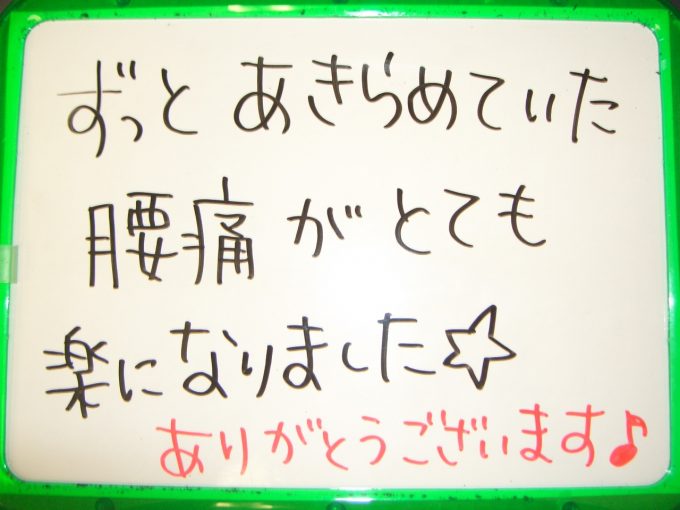 ずっと あきらめていた
腰痛がとても
楽になりました☆
ありがとうございます♪